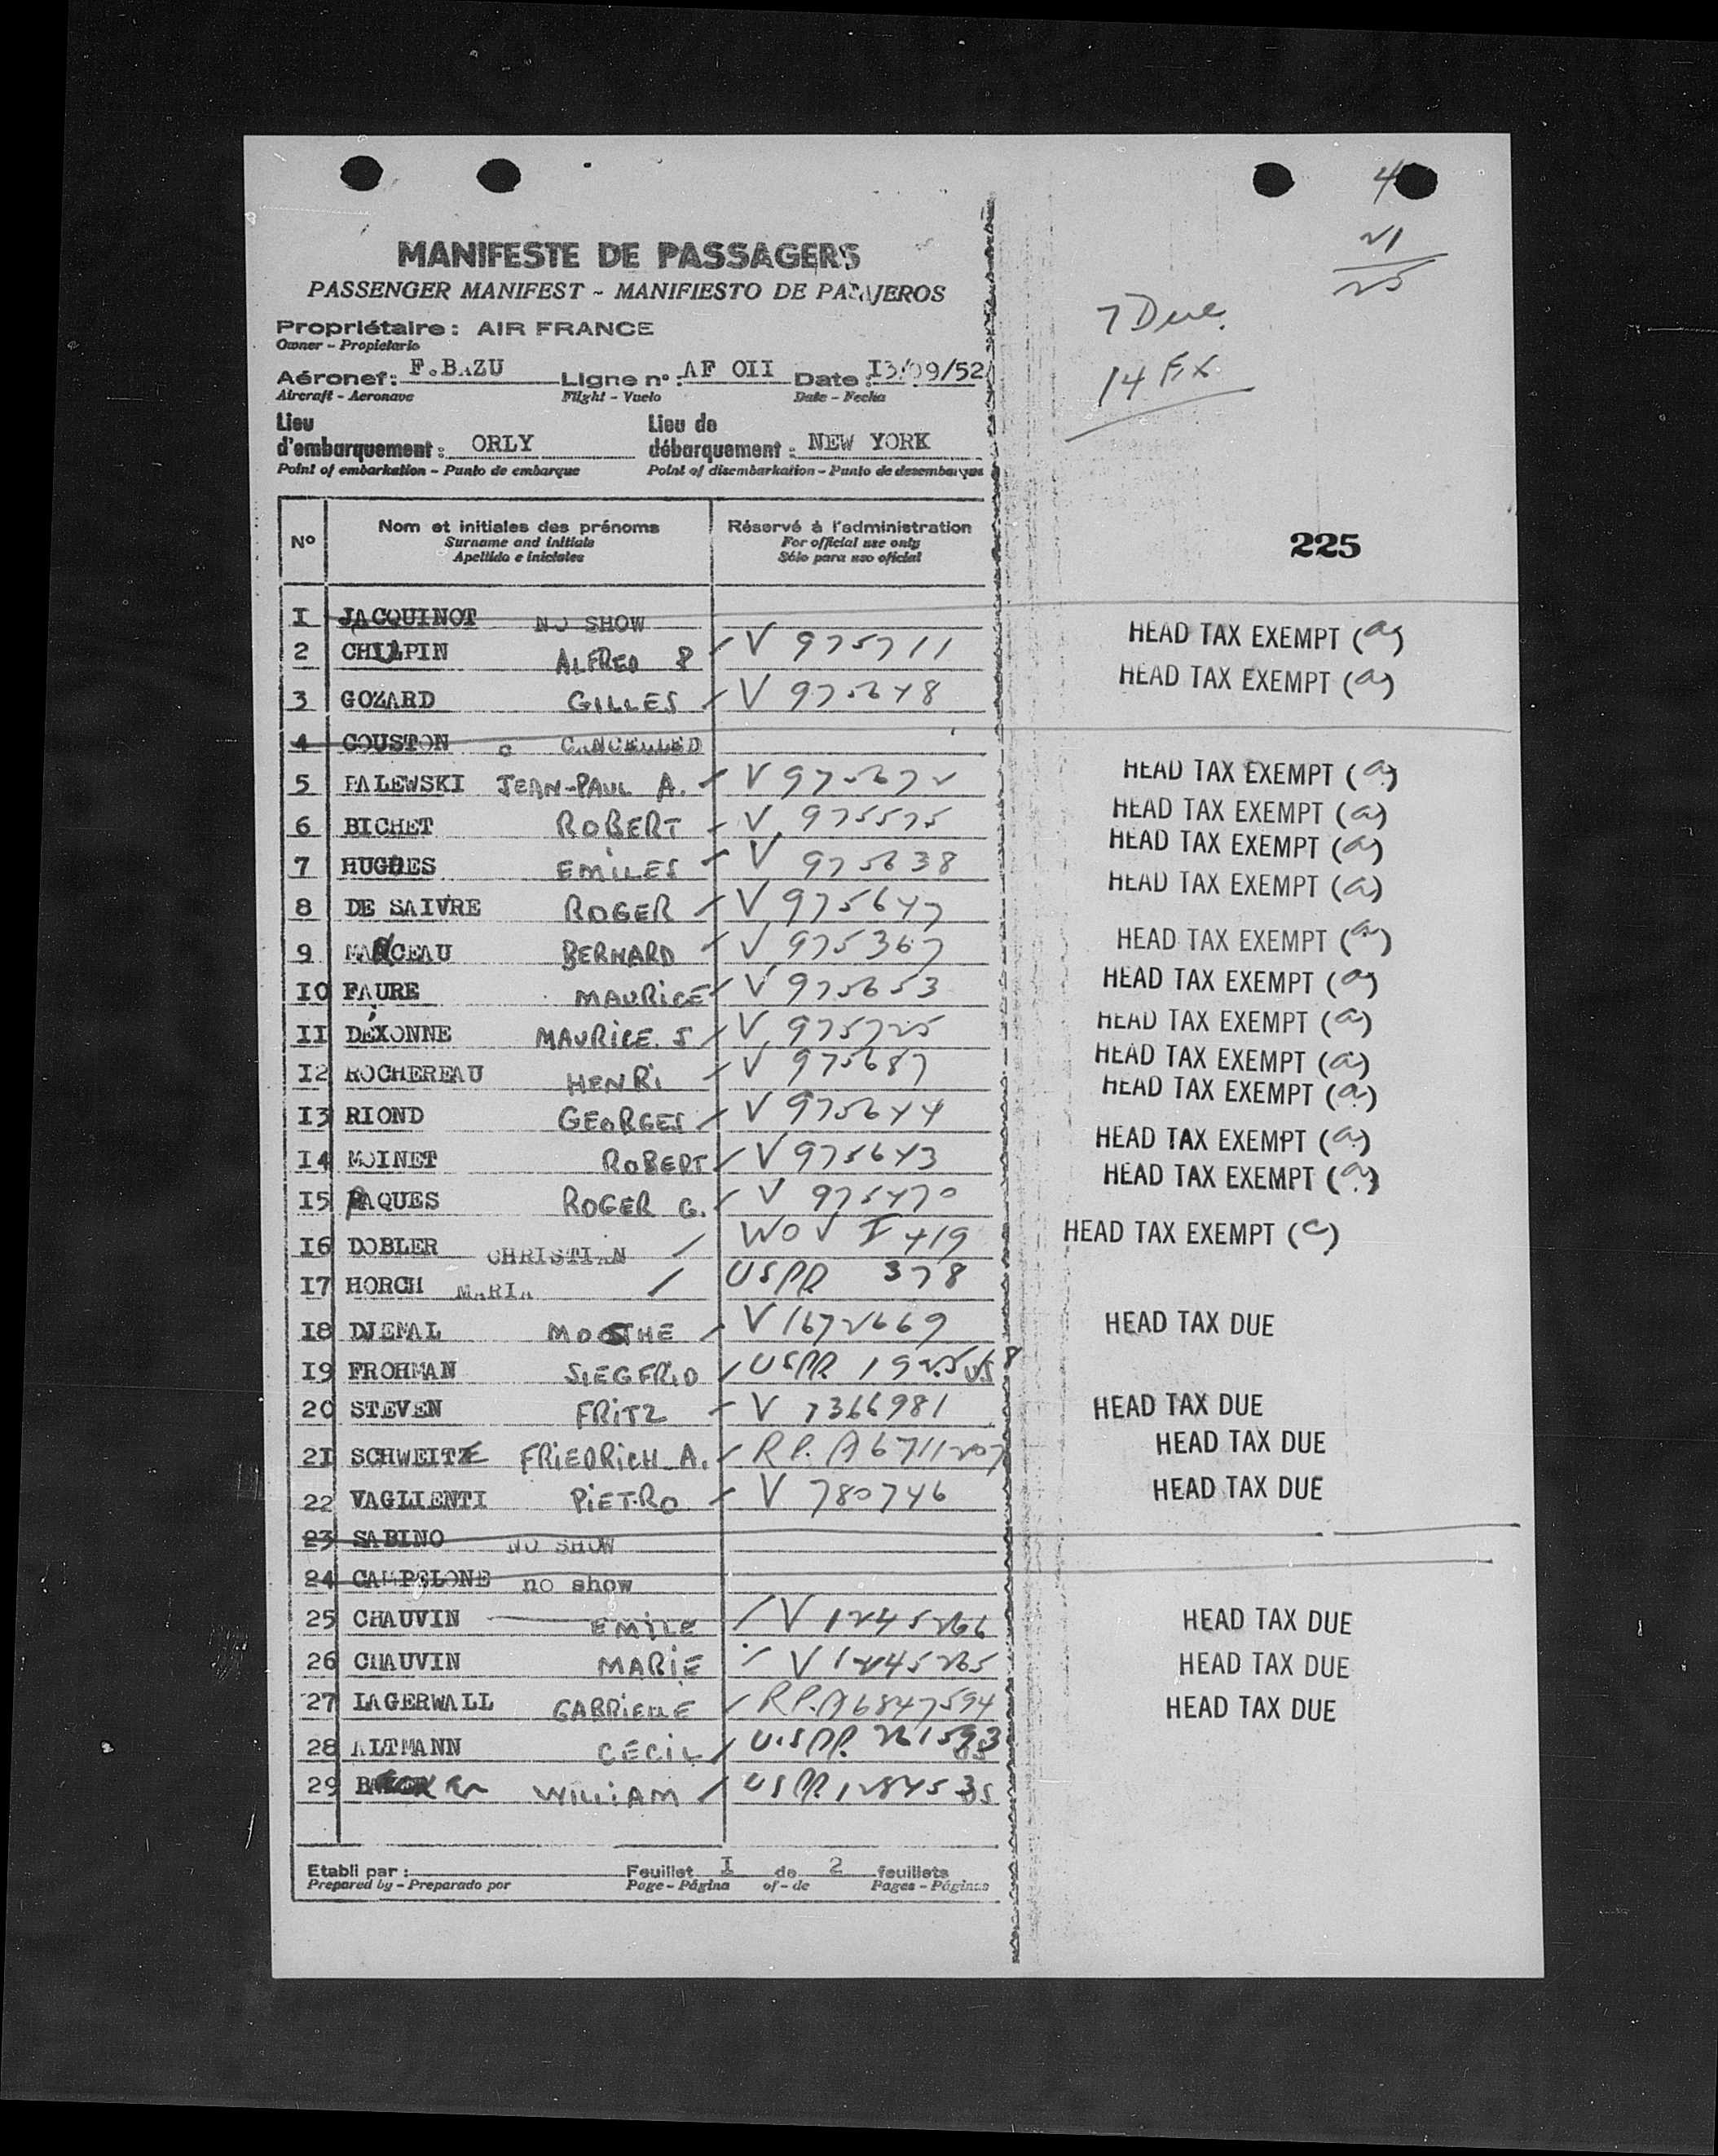 4
21
25
MANIFESTE DE PASSAGERS
PASSENGER MANIFEST - MANIFIESTO DE PASAJEROS
7 Due.
14 Ex.
Propriétaire: AIR FRANCE
Owner - Propietario
Aéronef: F.BAZU Ligne n°: AF OII Date: I3/09/52
Aircraft - Aeronave Flight - Vuelo Date - Fecha
Lieu d'embarquement: ORLY Lieu de débarquement: NEW YORK
Point of embarkation - Punto de embarque Point of disembarkation - Punto de desembarque
225
N° Nom et initiales des prénoms Réservé à l'administration
Surname and initials For official use only
Apellido e iniciales Sólo para uso oficial
I JACQUINOT NO SHOW
2 CHUPIN ALFRED P V 975711 HEAD TAX EXEMPT (a)
3 GOZARD GILLES V 975648 HEAD TAX EXEMPT (a)
4 COUSTON C CANCELLED
5 PALEWSKI JEAN-PAUL A. V 975672 HEAD TAX EXEMPT (a)
6 BICHET ROBERT V 975575 HEAD TAX EXEMPT (a)
7 HUGUES EMILES V 975638 HEAD TAX EXEMPT (a)
8 DE SAIVRE ROGER V 975647 HEAD TAX EXEMPT (a)
9 MANCEAU BERNARD V 975367 HEAD TAX EXEMPT (a)
I0 FAURE MAURICE V 975653 HEAD TAX EXEMPT (a)
II DÉIXONNE MAURICE. J V 975725 HEAD TAX EXEMPT (a)
I2 ROCHEREAU HENRI V 975687 HEAD TAX EXEMPT (a)
I3 RIOND GEORGES V 975644 HEAD TAX EXEMPT (a)
I4 MOINET ROBERT V 975643 HEAD TAX EXEMPT (a)
I5 PAQUES ROGER G. V 975470 HEAD TAX EXEMPT (a)
I6 DOBLER CHRISTIAN WO V I 419 HEAD TAX EXEMPT (c)
I7 HORCH MARIA USPP. 378
I8 DJEMAL MOSHE V 1672669 HEAD TAX DUE
I9 FROHMAN SIEGFRID USPP. 1925
20 STEVEN FRITZ V 7366981 HEAD TAX DUE
2I SCHWEITZE FRIEDRICH A. R.P. A6711207 HEAD TAX DUE
22 VAGLIENTI PIETRO V 780746 HEAD TAX DUE
23 SABINO NO SHOW
24 CAMPELONE no show
25 CHAUVIN EMILE V 1245266 HEAD TAX DUE
26 CHAUVIN MARIE V 1245265 HEAD TAX DUE
27 LAGERWALL GABRIELLE R.P. A6847594 HEAD TAX DUE
28 ALTMANN CECIL U.S PP. 261593
29 WILLIAM US PP. 128453
Etabli par: Feuillet I de 2 feuillets
Prepared by - Preparado por Page - Página of - de Pages - Páginas